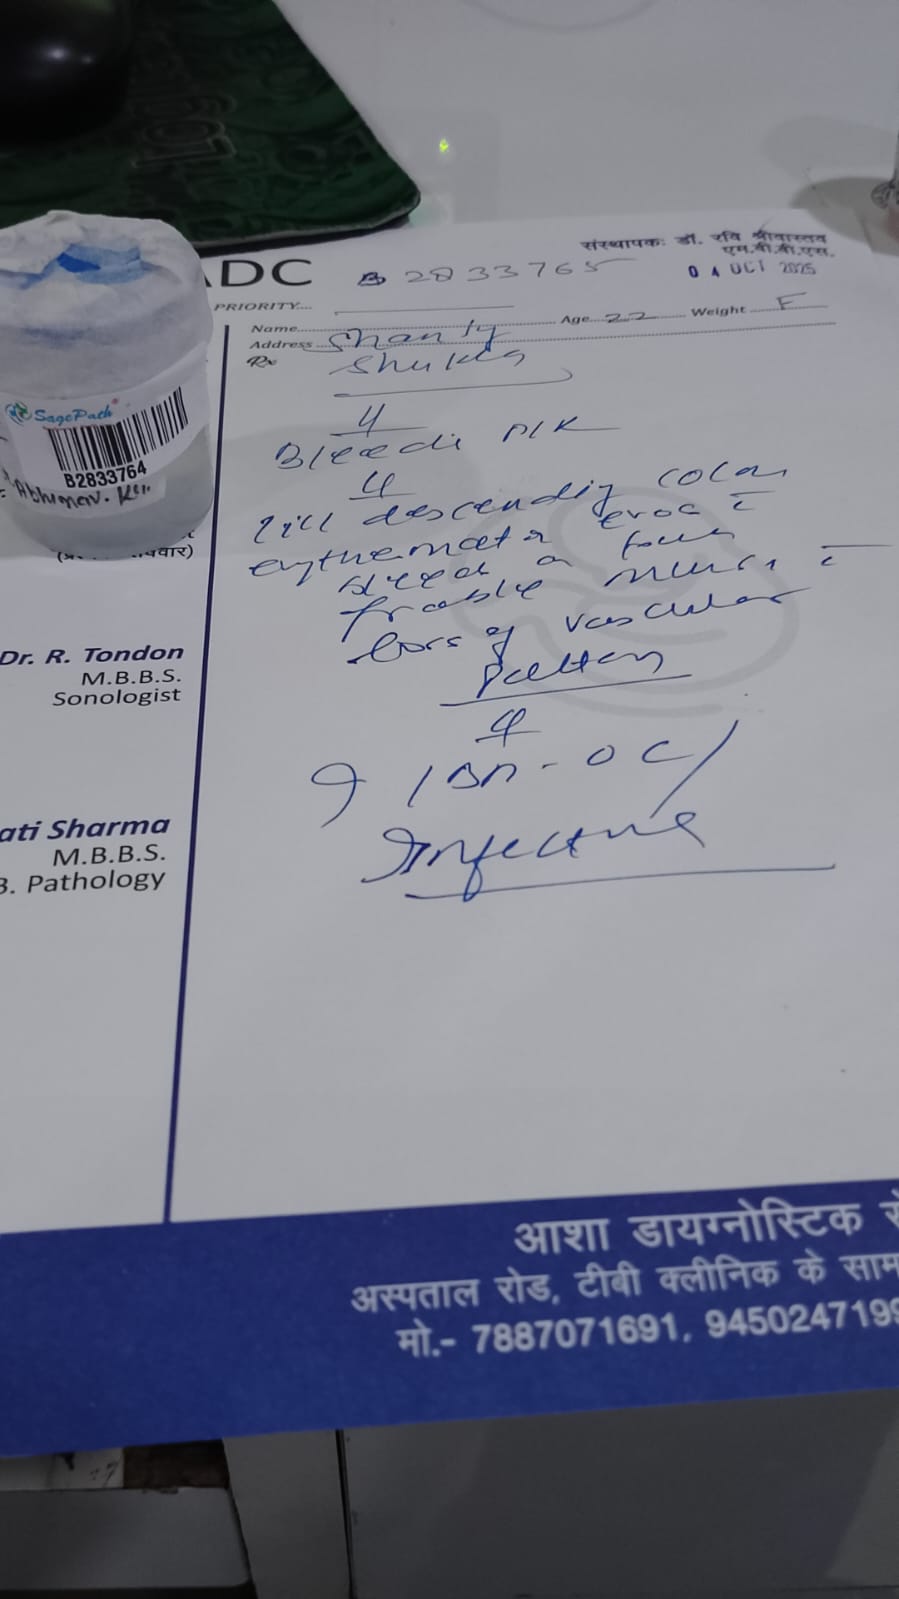 संस्थापक: डॉ. रवि श्रीवास्तव
एम.बी.बी.एस.
ADC B 2833765 04 OCT 2025
PRIORITY....
Name Age 22 Weight F
Address Shanty
Rx Shukla
Bleedi P/R
till descending colon
erythemat
bleed
friable c̄
loss of vascular
pattern
? IBD - UC/
Infective
SagePath
B2833764
Abhinav.
Dr. R. Tondon
M.B.B.S.
Sonologist
ati Sharma
M.B.B.S.
Pathology
आशा डायग्नोस्टिक
अस्पताल रोड, टीबी क्लीनिक के साम
मो.- 7887071691, 945024719